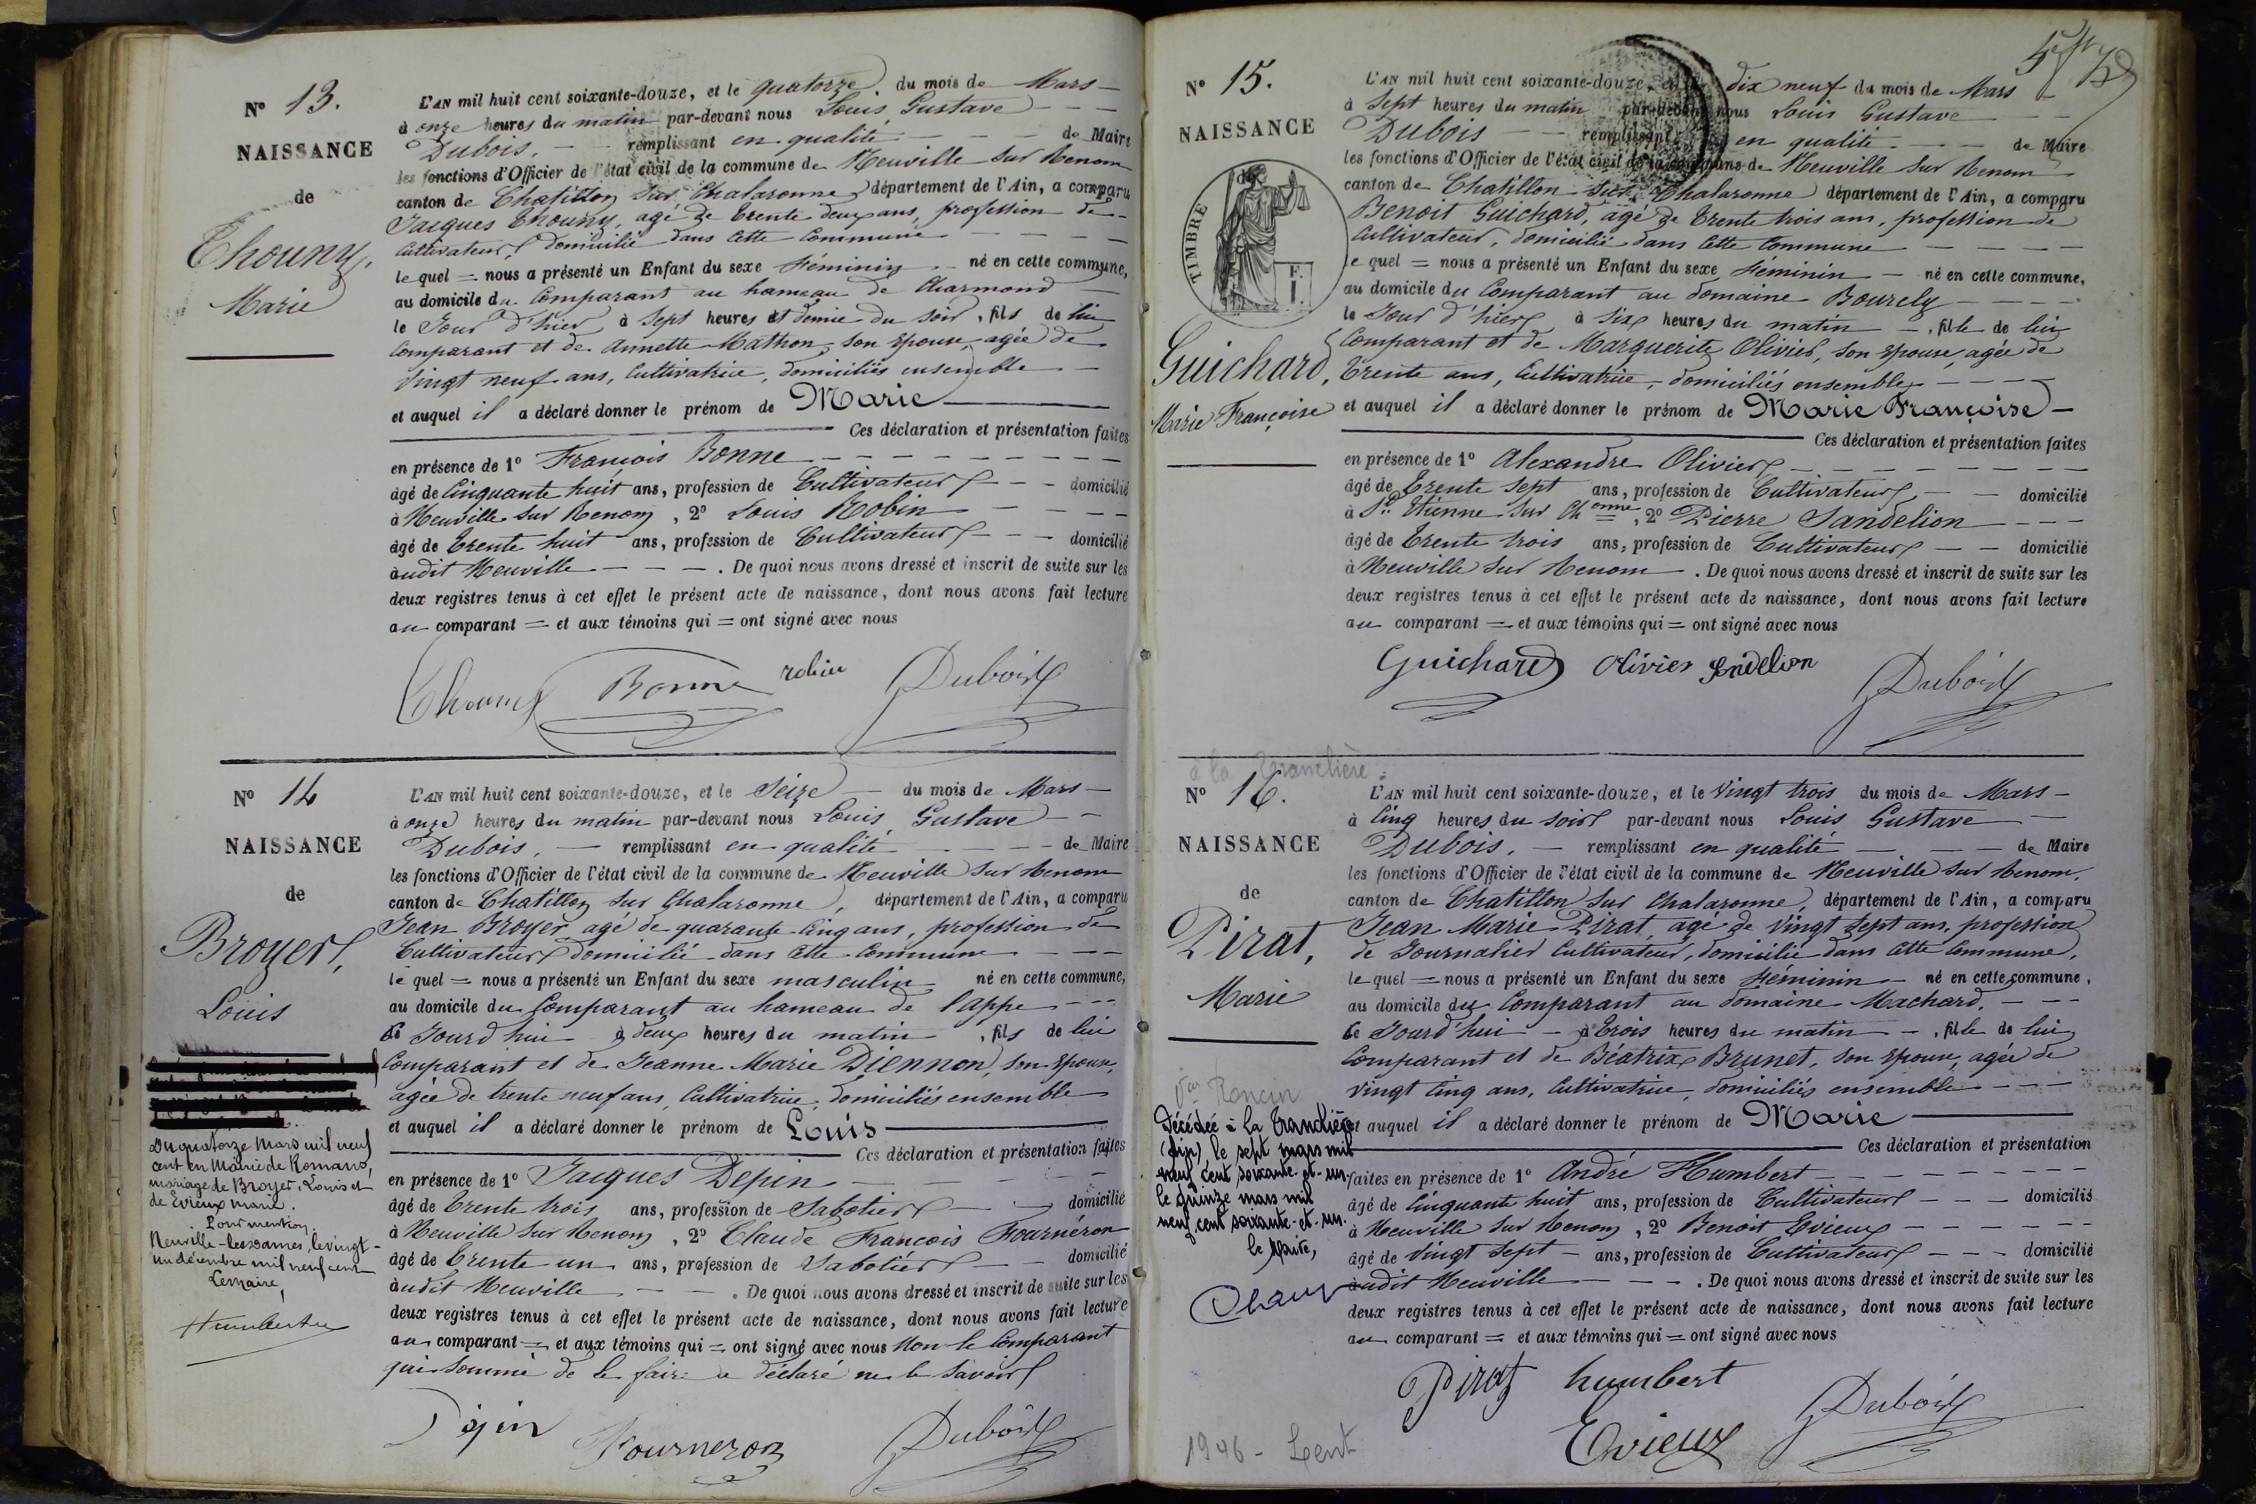 N° 13.
NAISSANCE
de
Thouny,
Marie
L'AN mil huit cent soixante-douze, et le quatorze du mois de Mars
à onze heures du matin par-devant nous Louis Gustave
Dubois, remplissant en qualité de Maire
les fonctions d'Officier de l'état civil de la commune de Neuville sur Renom
canton de Chatillon sur Chalaronne, département de l'Ain, a comparu
Jacques Thouny, agé de trente deux ans, profession de
Cultivateur, domicilié dans cette commune
le quel = nous a présenté un Enfant du sexe féminin né en cette commune,
au domicile du Comparant au hameau de Charmond
le Jour d'hier à Sept heures et demie du soir, fils de lui
Comparant et de Annette Mathon, son épouse, agée de
vingt neuf ans, Cultivatrice, domiciliés ensemble
et auquel il a déclaré donner le prénom de Marie
Ces déclaration et présentation faites
en présence de 1° François Bonne
âgé de Cinquante huit ans, profession de Cultivateur domicilié
à Neuville sur Renom, 2° Louis Robin
âgé de trente huit ans, profession de Cultivateur domicilié
audit Neuville. De quoi nous avons dressé et inscrit de suite sur les
deux registres tenus à cet effet le présent acte de naissance, dont nous avons fait lecture
au comparant = et aux témoins qui = ont signé avec nous
Bonne robin Dubois
N° 14
NAISSANCE
de
Broyer,
Louis
Du quatorze Mars mil neuf
cent en Mairie de Romans,
mariage de Broyer, Louis et
de Evieux Marie.
Pour mention.
Neuville-les-Dames, le vingt-
un décembre mil neuf cent
Le Maire,
L'AN mil huit cent soixante-douze, et le Seize du mois de Mars
à onze heures du matin par-devant nous Louis Gustave
Dubois, remplissant en qualité de Maire
les fonctions d'Officier de l'état civil de la commune de Neuville sur Renom
canton de Chatillon sur Chalaronne, département de l'Ain, a comparu
Jean Broyer agé de quarante cinq ans, profession de
Cultivateur domicilié dans cette commune
le quel = nous a présenté un Enfant du sexe masculin né en cette commune,
au domicile du Comparant au hameau de Lappe
ce Jourd'hui à deux heures du matin, fils de lui
Comparant et de Jeanne Marie Diennon, son épouse,
agée de trente neuf ans, Cultivatrice, domiciliés ensemble
et auquel il a déclaré donner le prénom de Louis
Ces déclaration et présentation faites
en présence de 1° Jacques Depin
âgé de trente trois ans, profession de Sabotier domicilié
à Neuville sur Renom, 2° Claude François Fournéron
âgé de trente un ans, profession de Sabotier domicilié
audit Neuville. De quoi nous avons dressé et inscrit de suite sur les
deux registres tenus à cet effet le présent acte de naissance, dont nous avons fait lecture
au comparant = et aux témoins qui = ont signé avec nous Non le Comparant
qui sommé de le faire a déclaré ne le savoir
Fourneron Dubois
N° 15.
NAISSANCE
de
TIMBRE
F. I.
Guichard,
Marie Françoise
L'AN mil huit cent soixante-douze, et le dix neuf du mois de Mars
à Sept heures du matin par-devant nous Louis Gustave
Dubois remplissant en qualité de Maire
les fonctions d'Officier de l'état civil de la commune de Neuville sur Renom
canton de Chatillon sur Chalaronne département de l'Ain, a comparu
Benoit Guichard, agé de trente trois ans, profession de
Cultivateur, domicilié dans cette commune
le quel = nous a présenté un Enfant du sexe féminin né en cette commune,
au domicile du Comparant au domaine Bourely
le Jour d'hier à six heures du matin, fille de lui
Comparant et de Marguerite Olivier, son épouse, agée de
trente ans, Cultivatrice, domiciliés ensemble
et auquel il a déclaré donner le prénom de Marie Françoise
Ces déclaration et présentation faites
en présence de 1° Alexandre Olivier
âgé de trente sept ans, profession de Cultivateur domicilié
à St. Etienne sur Chonne, 2° Pierre Sandelion
âgé de trente trois ans, profession de Cultivateur domicilié
à Neuville sur Renom. De quoi nous avons dressé et inscrit de suite sur les
deux registres tenus à cet effet le présent acte de naissance, dont nous avons fait lecture
au comparant = et aux témoins qui = ont signé avec nous
Guichard Olivier Sandelion
Dubois
à la Tranclière
N° 16.
NAISSANCE
de
Pirat,
Marie
Décédée à La Tranclière
(Ain) le sept mars mil
neuf cent soixante-et-un.
le quinze mars mil
neuf cent soixante-et-un.
le Maire,
1946 - Lent
L'AN mil huit cent soixante-douze, et le vingt trois du mois de Mars
à Cinq heures du soir par-devant nous Louis Gustave
Dubois, remplissant en qualité de Maire
les fonctions d'Officier de l'état civil de la commune de Neuville sur Renom,
canton de Chatillon sur Chalaronne, département de l'Ain, a comparu
Jean Marie Pirat, agé de vingt sept ans, profession
de Journalier Cultivateur, domicilié dans cette commune,
le quel = nous a présenté un Enfant du sexe féminin né en cette commune,
au domicile du Comparant au domaine Machard,
ce Jourd'hui à trois heures du matin, fille de lui
Comparant et de Béatrix Brunet, son épouse, agée de
vingt cinq ans, Cultivatrice, domiciliés ensemble
et auquel il a déclaré donner le prénom de Marie
Ces déclaration et présentation
faites en présence de 1° André Humbert
âgé de cinquante huit ans, profession de Cultivateur domicilié
à Neuville sur Renom, 2° Benoit Evieux
âgé de vingt sept ans, profession de Cultivateur domicilié
audit Neuville. De quoi nous avons dressé et inscrit de suite sur les
deux registres tenus à cet effet le présent acte de naissance, dont nous avons fait lecture
au comparant = et aux témoins qui = ont signé avec nous
Pirat humbert
Dubois
Evieux